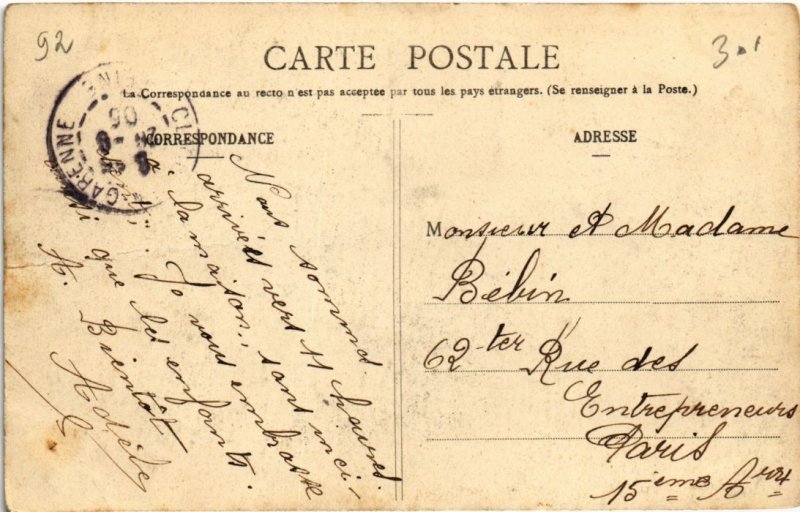 92
3.1
CARTE POSTALE
La Correspondance au recto n'est pas acceptée par tous les pays étrangers. (Se renseigner à la Poste.)
CORRESPONDANCE
GARENNE
05
Nous sommes
arrivées vers 11 heures
à la maison, sans inci-
Je vous embrasse
si que les enfants.
A. Bientôt
Adèle
ADRESSE
Monsieur et Madame
Bébin
62 ter Rue des
Entrepreneurs
Paris
15ème Arrt